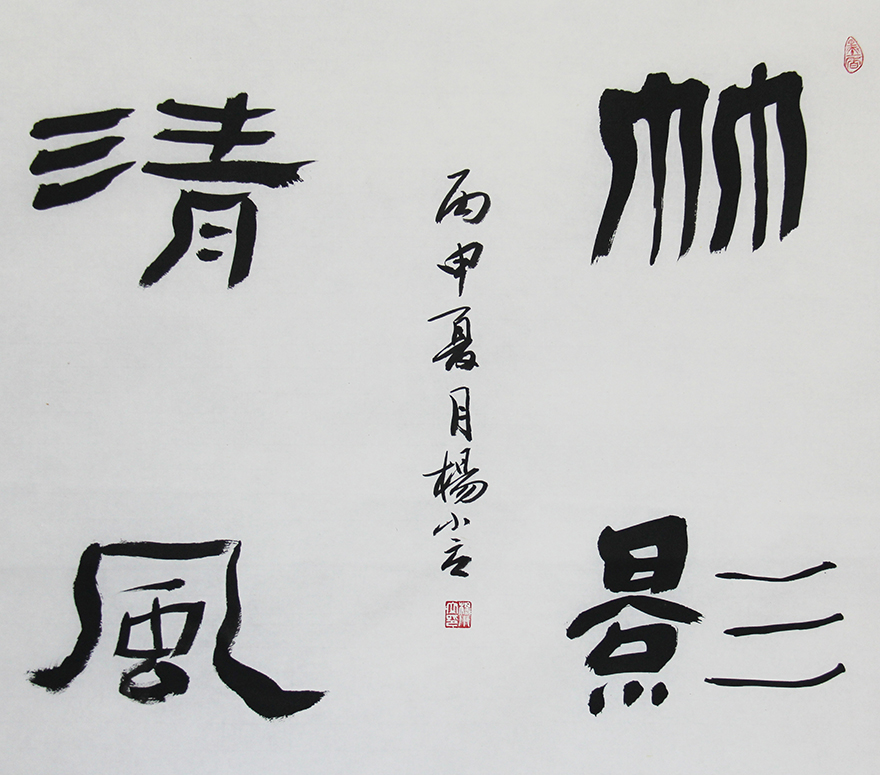 竹影
丙申夏月楊小言
清風